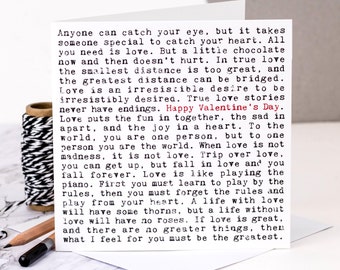 Anyone can catch your eye, but it takes
someone special to catch your heart. All
you need is love. But a little chocolate
now and then doesn't hurt. In true love
the smallest distance is too great, and
the greatest distance can be bridged.
Love is an irresistible desire to be
irresistibly desired. True love stories
never have endings. Happy Valentine's Day.
Love puts the fun in together, the sad in
apart, and the joy in a heart. To the
world, you are one person, but to one
person you are the world. When love is not
madness, it is not love. Trip over love,
you can get up, but fall in love and you
fall forever. Love is like playing the
piano. First you must learn to play by the
rules, then you must forget the rules and
play from your heart. A life with love
will have some thorns, but a life without
love will have no roses. If love is great,
and there are no greater things, then
what I feel for you must be the greatest.